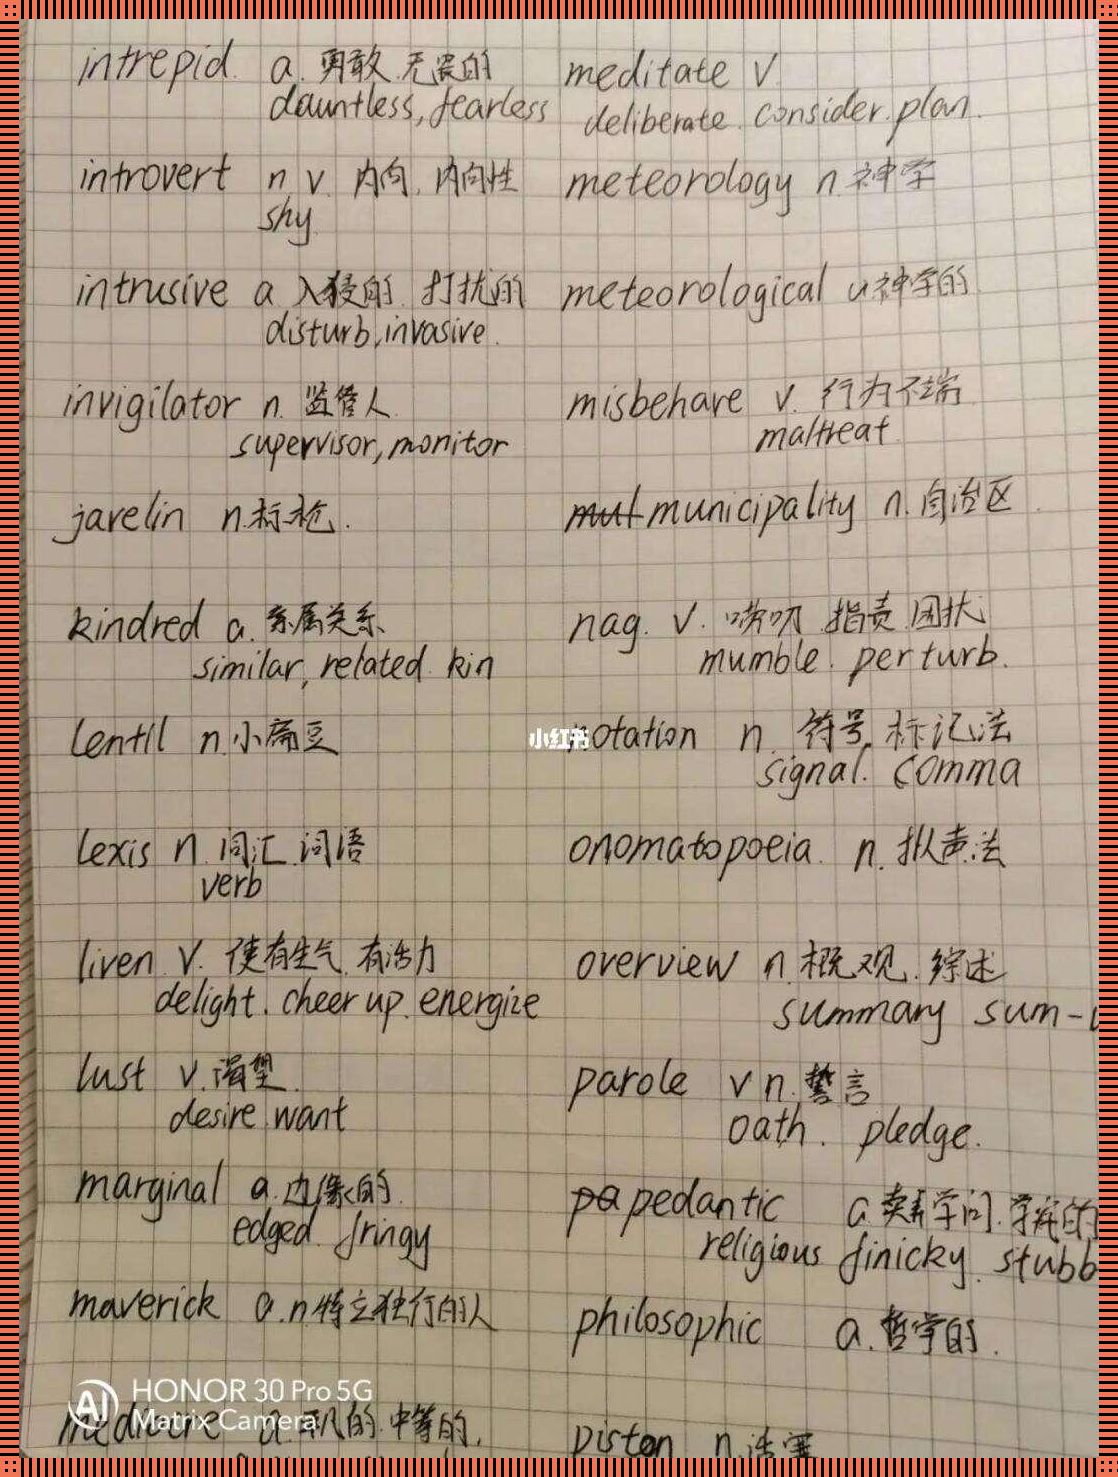 intrepid a. 勇敢 无畏的
dauntless, fearless
introvert n v 内向, 内向性
shy
intrusive a 入侵的 打扰的
disturb, invasive.
invigilator n. 监管人
supervisor, monitor
javelin n.标枪.
kindred a. 亲属关系
similar, related. kin
lentil n.小扁豆
lexis n.词汇 词语
verb
liven v. 使有生气 有活力
delight. cheer up. energize
lust v.渴望
desire want
marginal a.边缘的
edged. fringy
maverick a.n.特立独行的人
mediocre a.平凡的.中等的.
meditate v
deliberate. consider. plan.
meteorology n.神学
meteorological a神学的
misbehave v. 行为不端
maltreat
municipality n.自治区
nag. v. 唠叨 指责 困扰
mumble. perturb.
notation n. 符号 标记法
signal. comma
onomatopoeia. n. 拟声法
overview n.概观. 综述
summary sum-u
parole v n.誓言
oath. pledge.
pa pedantic a.卖弄学问.学究的
religious finicky. stubb
philosophic a.哲学的.
piston n.活塞
小红书
AI HONOR 30 Pro 5G
Matrix Camera